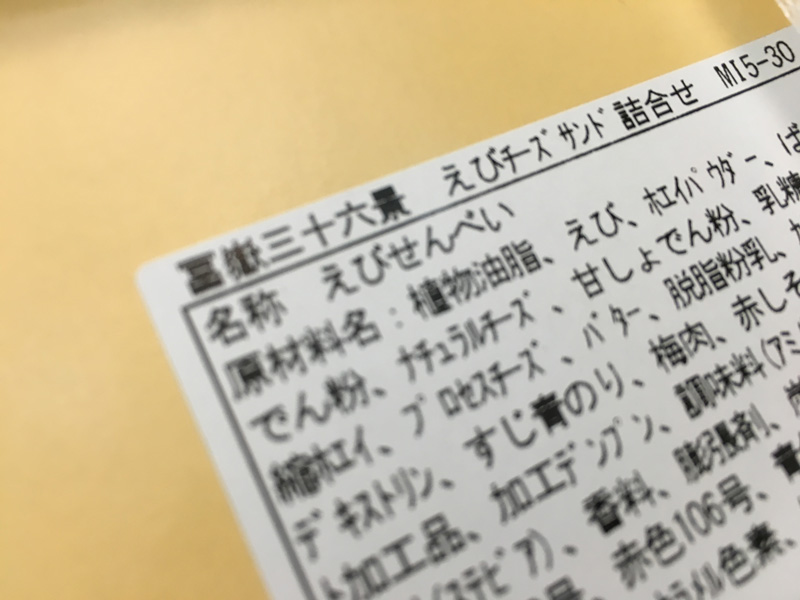 冨嶽三十六景 えびチーズサンド 詰合せ MI5-30
名称 えびせんべい
原材料名:植物油脂、えび、ホエイパウダー、ば
でん粉、ナチュラルチーズ、甘しょでん粉、乳糖
縮ホエイ、プロセスチーズ、バター、脱脂粉乳、
デキストリン、すじ青のり、梅肉、赤しそ
ト加工品、加工デンプン、調味料(アミ
(ステビア)、香料、膨張剤、炭
号、赤色106号、青
ラメル色素、